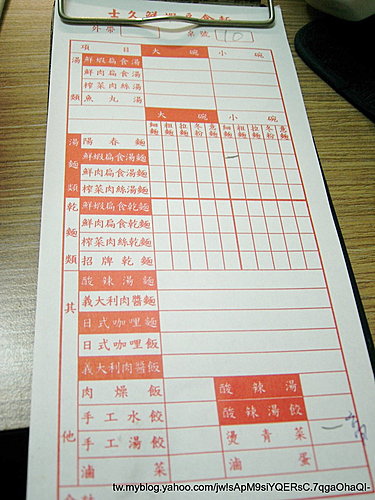 外帶 桌號 10
項目 大碗 小碗
湯類
鮮蝦扁食湯
鮮肉扁食湯
榨菜肉絲湯
魚丸湯
大碗 小碗
細麵 粗麵 拉麵 冬粉 意麵 細麵 粗麵 拉麵 冬粉 意麵
湯麵類
陽春麵
鮮蝦扁食湯麵
鮮肉扁食湯麵
榨菜肉絲湯麵
乾麵類
鮮蝦扁食乾麵
鮮肉扁食乾麵
榨菜肉絲乾麵
招牌乾麵
其他
酸辣湯麵
義大利肉醬麵
日式咖哩麵
日式咖哩飯
義大利肉醬飯
肉燥飯 酸辣湯
手工水餃 酸辣湯餃
手工湯餃 燙青菜 一
滷菜 滷蛋
tw.myblog.yahoo.com/jw!sApM9siYQERsC.7qgaOhaQI-